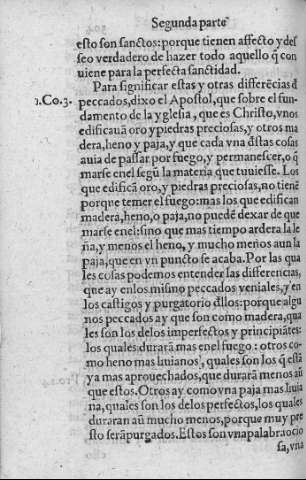 Segunda parte
esto son sanctos: porque tienen affecto y des
seo verdadero de hazer todo aquello q̃ con
uiene para la perfecta sanctidad.
Para significar estas y otras differẽcias d̃
1.Co.3. peccados, dixo el Apostol, que sobre el fun-
damento de la yglesia, que es Christo, vnos
edificauã oro y piedras preciosas, y otros ma
dera, heno y paja, y que cada vna d̃stas cosas
auia de passar por fuego, y permanescer, o q̃
marse enel segũ la materia que tuuiesse. Los
que edificã oro, y piedras preciosas, no tienẽ
porque temer el fuego: mas los que edifican
madera, heno, o paja, no puedẽ dexar de que
marse enel: sino que mas tiempo ardera la le
ña, y menos el heno, y mucho menos aun la
paja, que en vn puncto se acaba. Por las qua
les cosas podemos entender las differencias,
que ay enlos mismo peccados veniales, y en
los castigos y purgatorio d̃llos: porque algu
nos peccados ay que son como madera, qua
les son los delos imperfectos y principiãtes:
los quales durarã mas enel fuego: otros co-
mo heno mas liuianos, quales son los q̃ estã
ya mas aprouechados, que durarã menos aũ
que estos. Otros ay como vna paja mas liuia
na, quales son los delos perfectos, los quales
duraran aũ mucho menos, porque muy pre
sto serã purgados. Estos son vna palabra ocio
sa, vna